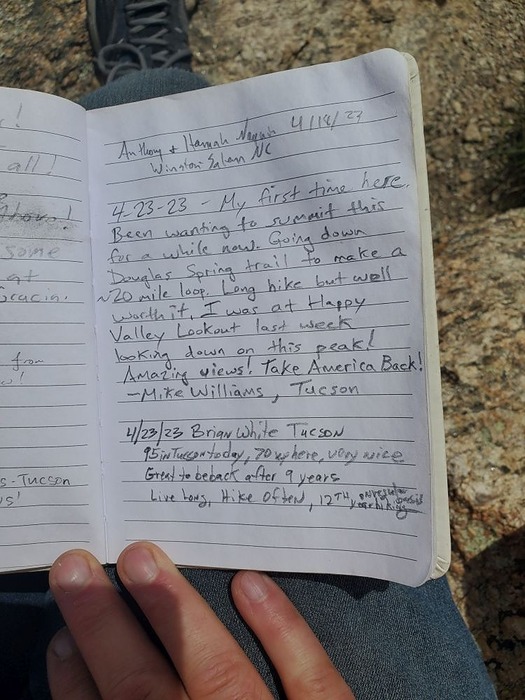 !
all!
some
at
Gracin.
from
s-Tucson
Anthony + Hannah 4/18/23
Winston Salem NC
4-23-23 - My first time here.
Been wanting to summit this
for a while now. Going down
Douglas Spring trail to make a
~20 mile loop. Long hike but well
worth it. I was at Happy
Valley Lookout last week
looking down on this peak!
Amazing views! Take America Back!
-Mike Williams, Tucson
4/23/23 Brian White Tucson
95 in Tucson today, 70 up here, very nice
Great to be back after 9 years
Live Long, Hike Often, 12TH year hiking
on regular basis